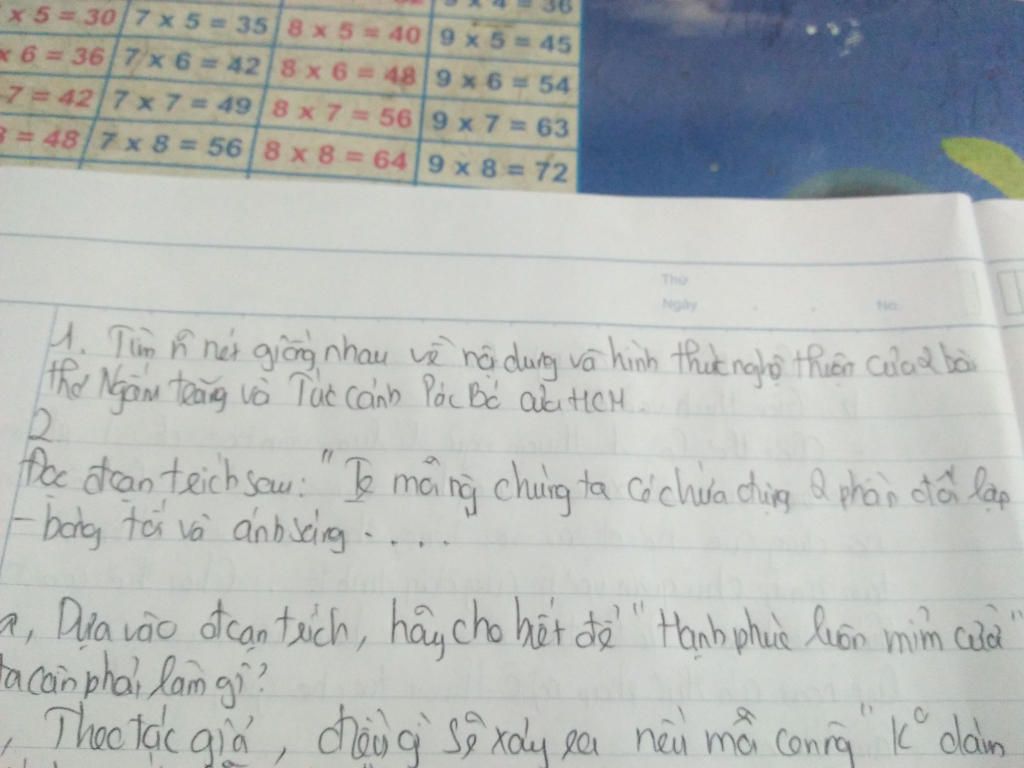 9 x 4 = 36
x 5 = 30 7 x 5 = 35 8 x 5 = 40 9 x 5 = 45
x 6 = 36 7 x 6 = 42 8 x 6 = 48 9 x 6 = 54
7 = 42 7 x 7 = 49 8 x 7 = 56 9 x 7 = 63
8 = 48 7 x 8 = 56 8 x 8 = 64 9 x 8 = 72
Thứ
Ngày No.
1. Tìm n~ nét giống nhau về nội dung và hình thức nghệ thuật của 2 bài
thơ Ngắm trăng và Tức cảnh Pác Bó của HCM.
2
Đọc đoạn trích sau: "Tr mỗi ng chúng ta có chứa đựng 2 phần đối lập
- bóng tối và ánh sáng ....
a, Dựa vào đoạn trích, hãy cho biết để "Hạnh phúc luôn mỉm cười"
ta cần phải làm gì?
, Theo tác giả, điều gì sẽ xảy ra nếu mỗi con ng "K° dám